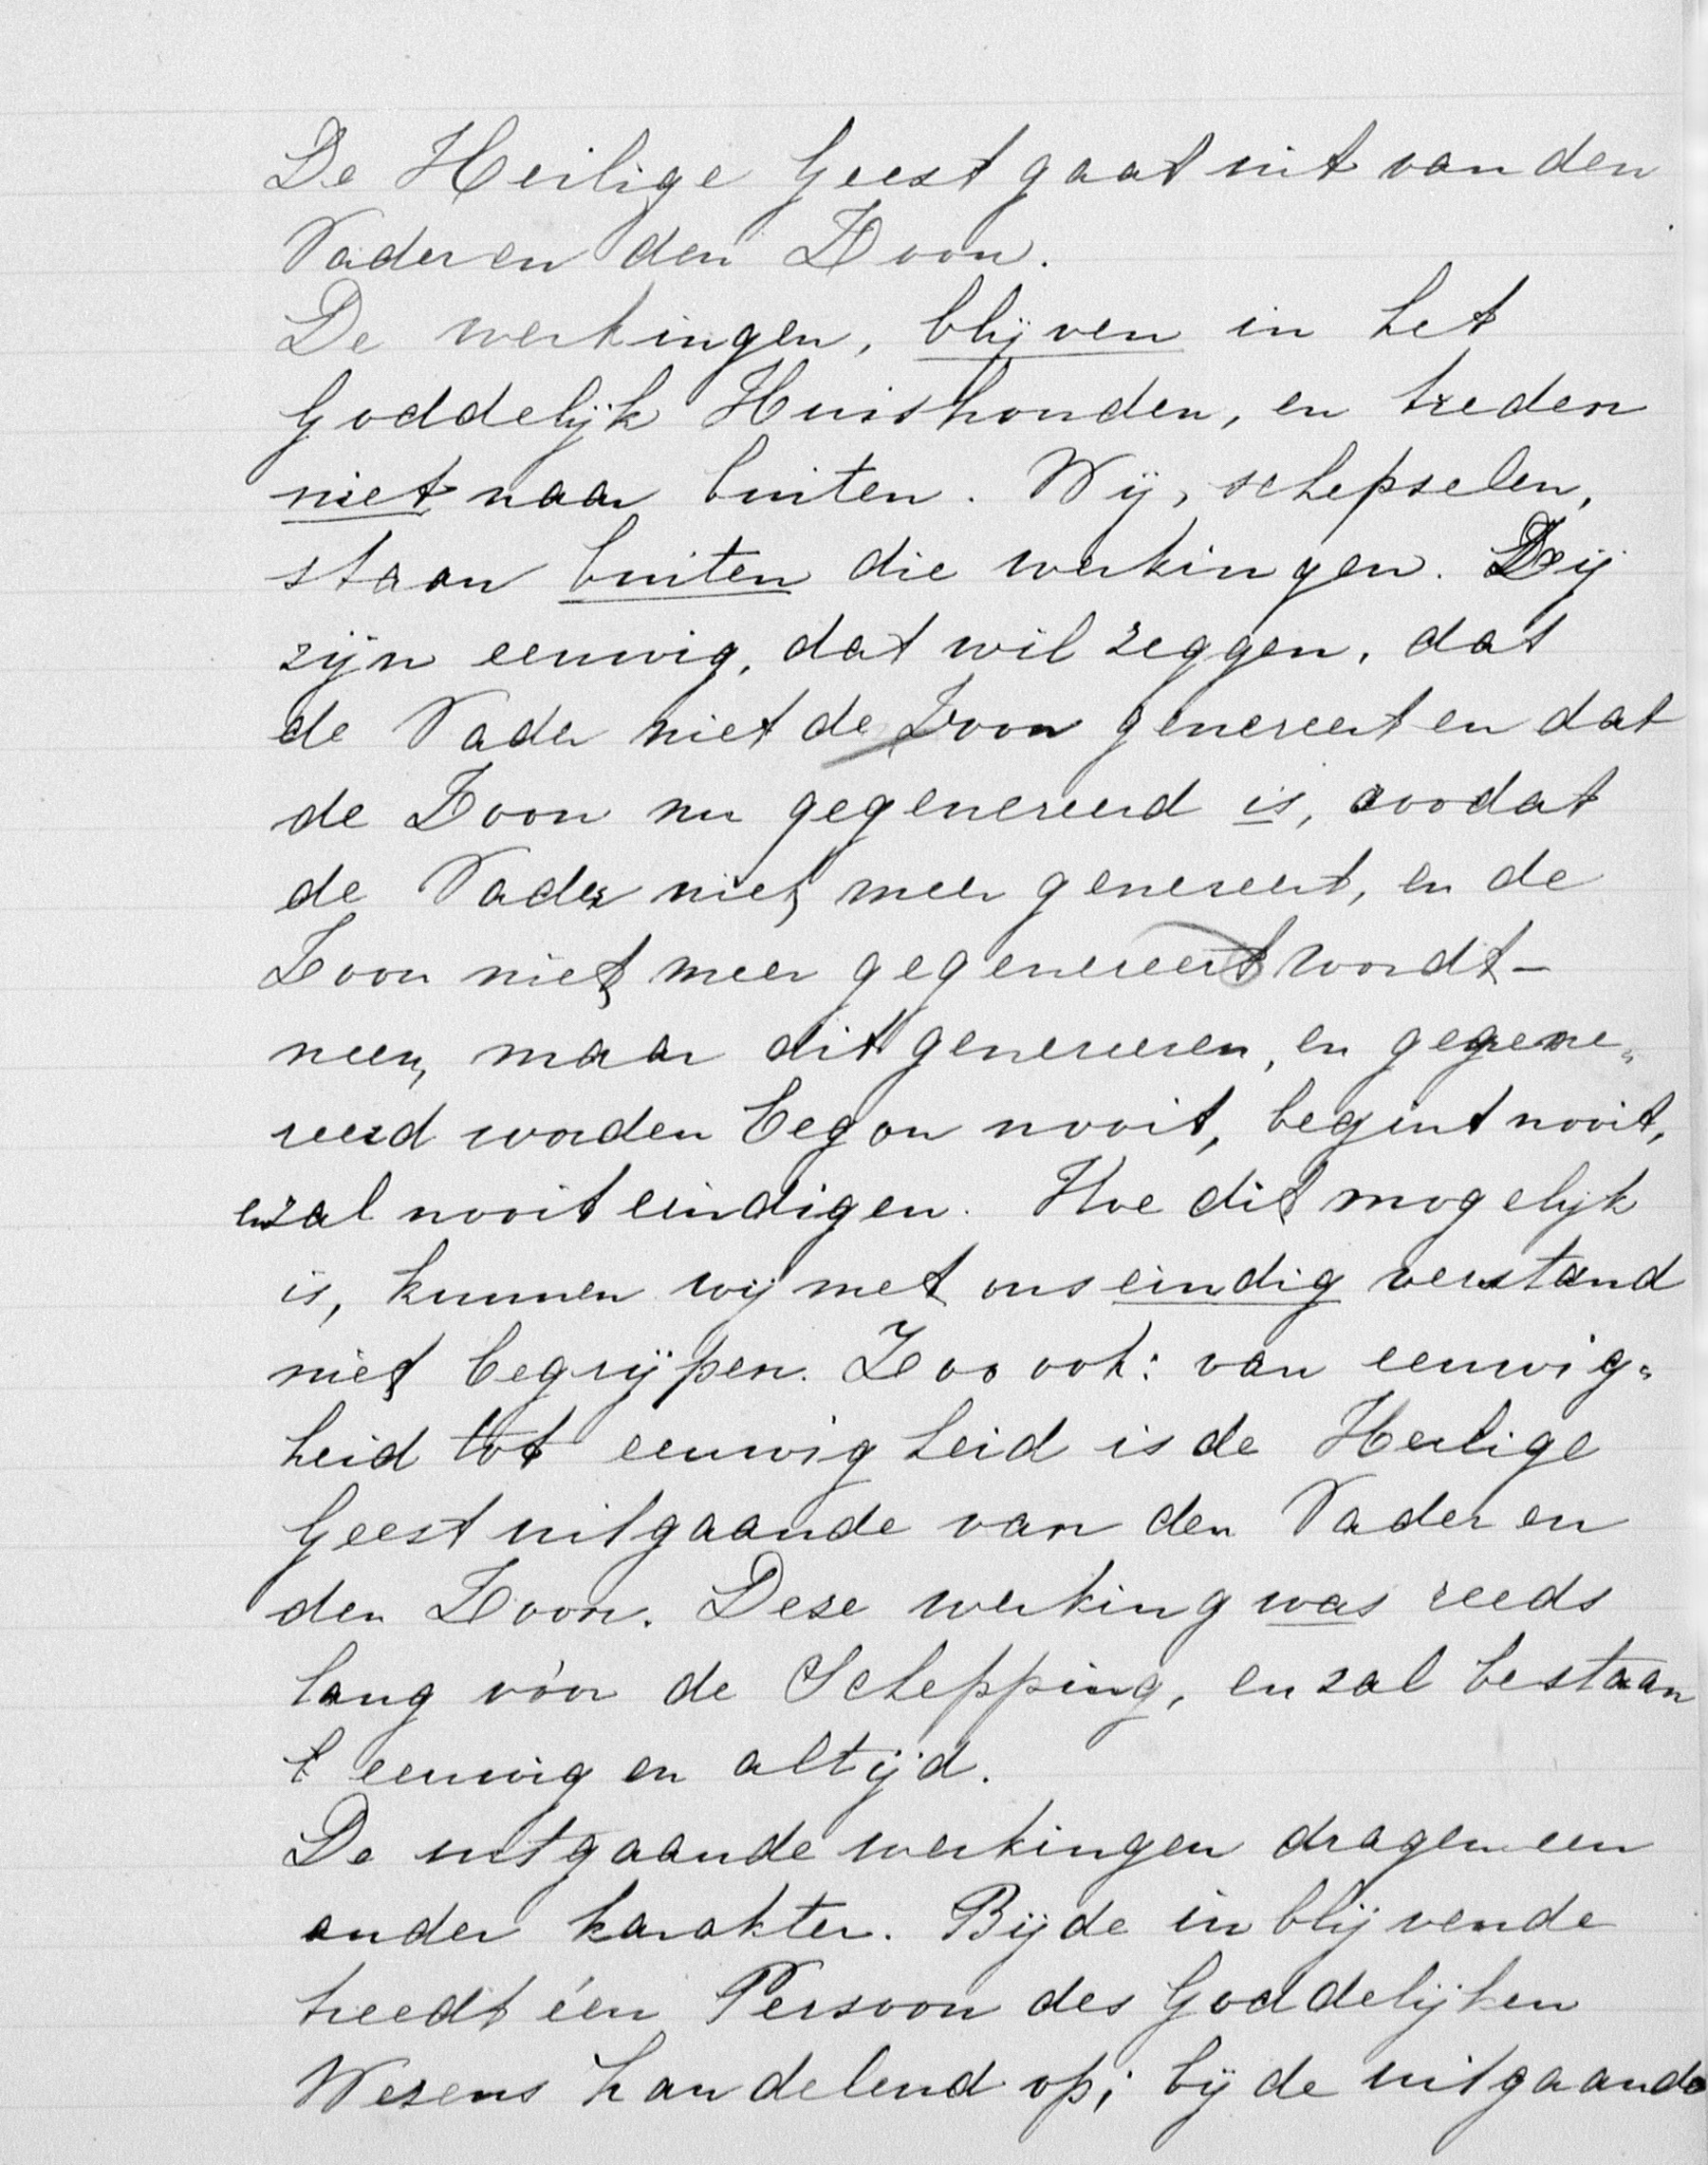 De Heilige Geest gaat uit van den
Vader en den Zoon.
De werkingen, blijven in het
Goddelijk Huishouden, en treden
niet naar buiten. Wij, schepselen,
staan buiten die werkingen. Zij
zijn eeuwig, dat wil zeggen, dat
de Vader niet de Zoon genereert en dat
de Zoon nu gegenereerd is, zoodat
de Vader niet meer genereert, en de
Zoon niet meer gegenereert wordt -
neen, maar dit genereeren, en gegene=
reerd worden begon nooit, begint nooit,
en zal nooit eindigen. Hoe dit mogelijk
is, kunnen wij met ons eindig verstand
niet begrijpen. Zoo ook: van eeuwig=
heid tot eeuwigheid is de Heilige
Geest uitgaande van den Vader en
den Zoon. Deze werking was reeds
lang vóór de Schepping, en zal bestaan
t eeuwig en altijd.
De uitgaande werkingen dragen een
ander karakter. Bij de inblijvende
treedt één Persoon des Goddelijken
Wezens handelend op; bij de uitgaande